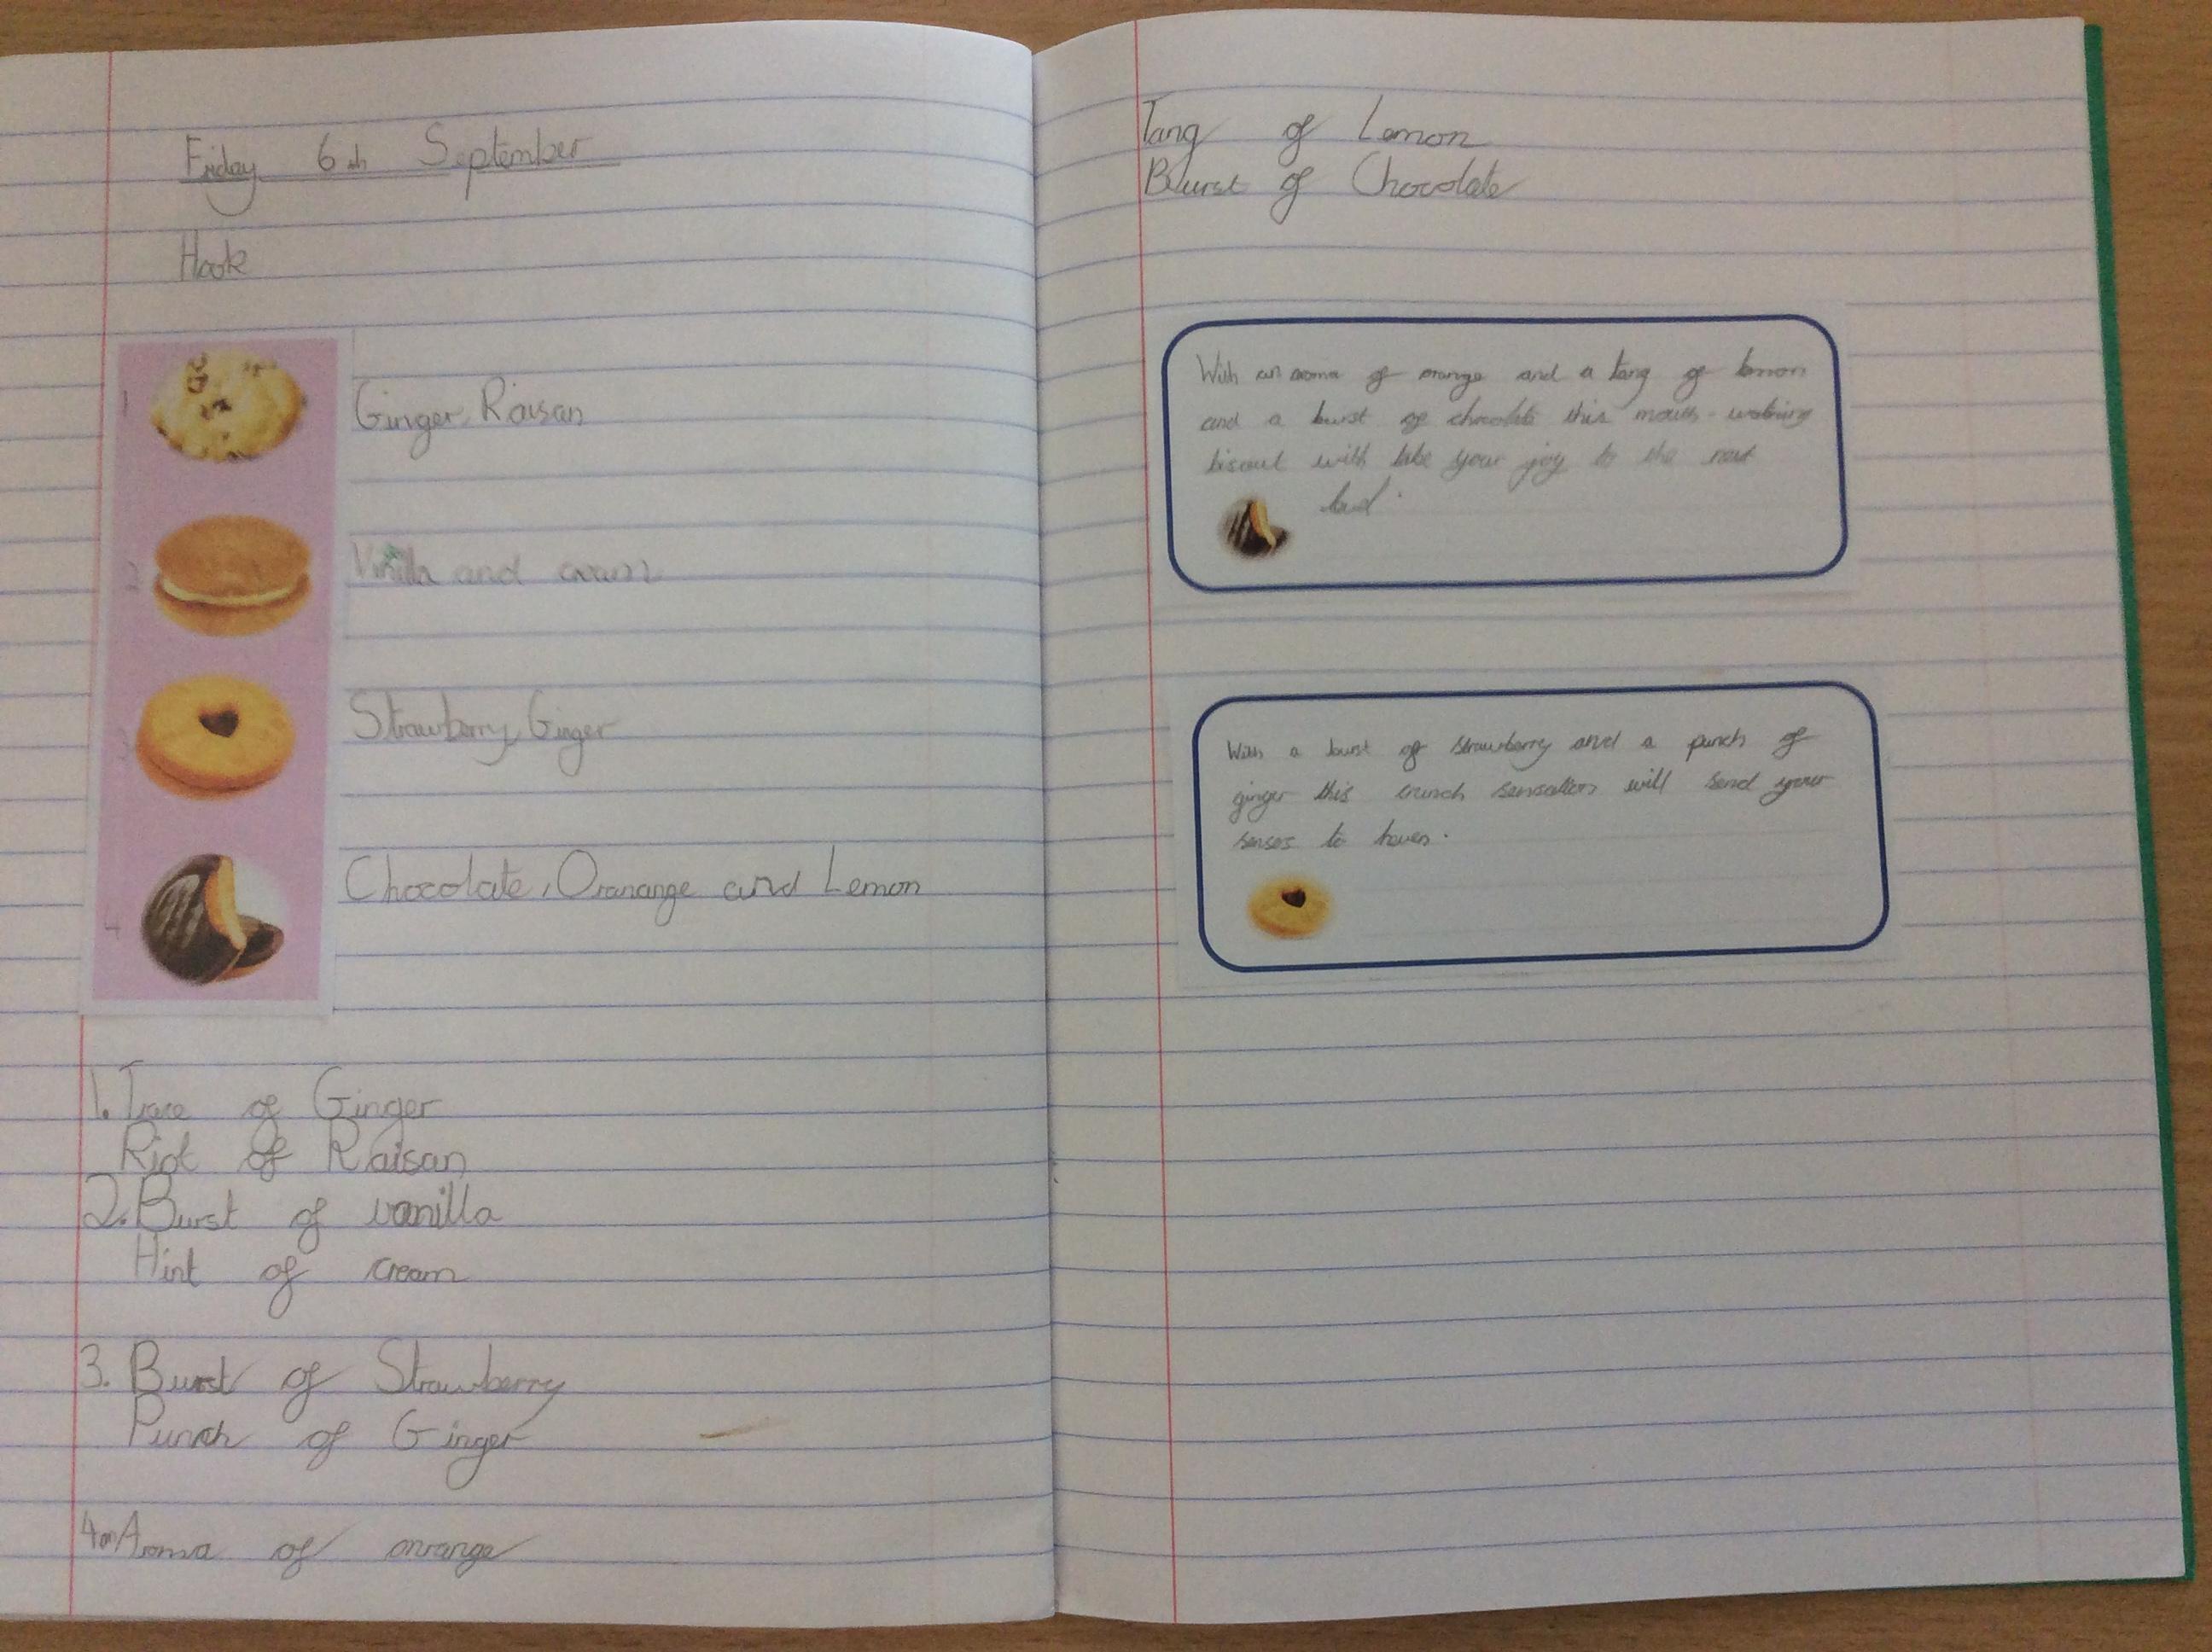 Friday 6th September
Hook
1
Ginger, Raisan
2
Vinilla and cream
3
Strawberry, Ginger
4
Chocolate, Oranange and Lemon
1. Trace of Ginger
Riot of Raisan
2. Burst of vanilla
Hint of cream
3. Burst of Strawberry
Punch of Ginger
4. an Aroma of orange
Tang of Lemon
Burst of Chocolate
With an aroma of orange and a tang of lemon
and a burst of chocolate this mouth-watering
biscuit with take your joy to the next
With a burst of strawberry and a punch of
ginger this crunch sensation will send your
senses to heven.